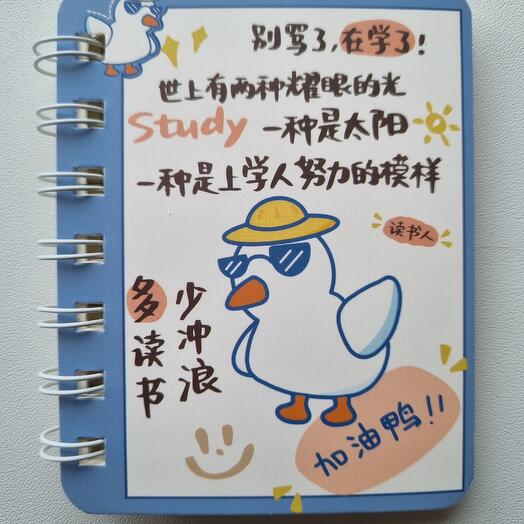 别写了,在学了!
世上有两种耀眼的光
Study 一种是太阳
一种是上学人努力的模样
读书人
多读书
少冲浪
加油鸭!!